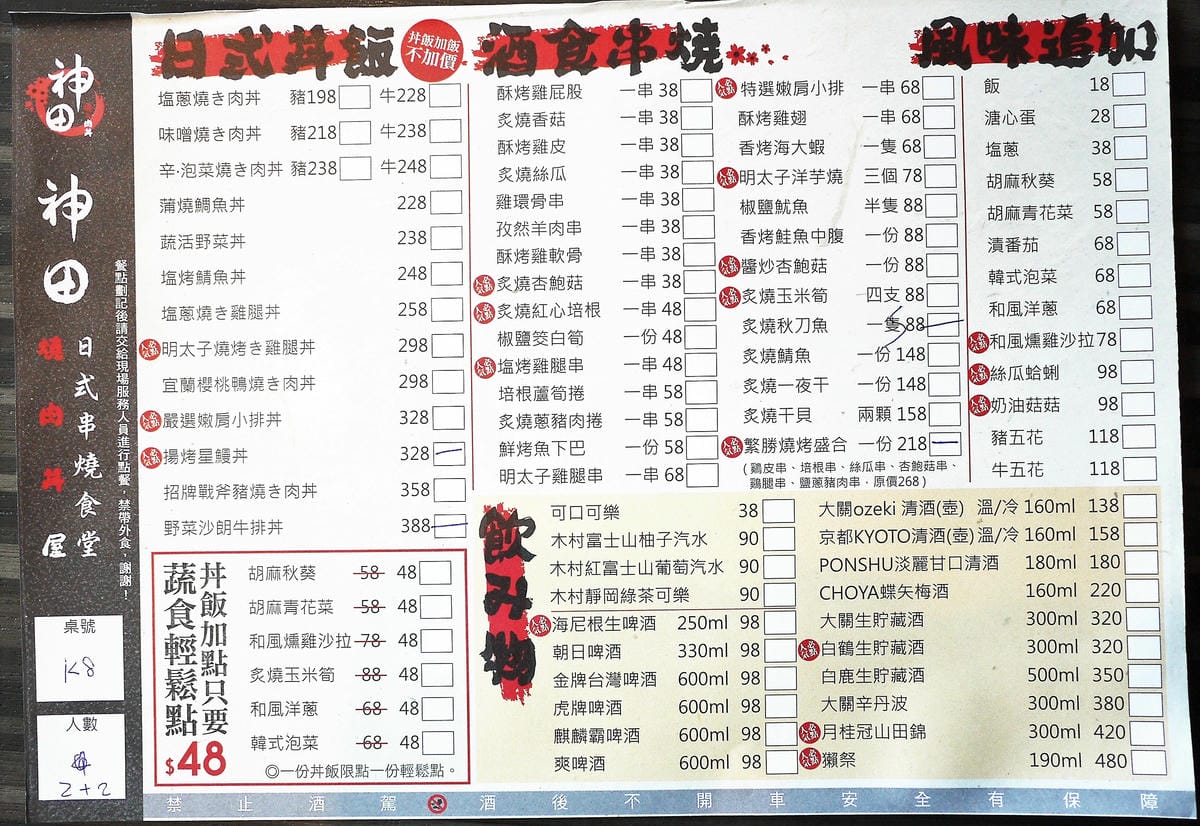 神田
肉丼
神田
日式串燒食堂
燒肉丼屋
餐點劃記後請交給現場服務人員進行點餐，禁帶外食，謝謝！
桌號
K8
人數
2+2
日式丼飯
丼飯加飯
不加價
塩蔥燒き肉丼 豬198 牛228
味噌燒き肉丼 豬218 牛238
辛‧泡菜燒き肉丼 豬238 牛248
蒲燒鯛魚丼 228
蔬活野菜丼 238
塩烤鯖魚丼 248
塩蔥燒き雞腿丼 258
人氣 明太子燒烤き雞腿丼 298
宜蘭櫻桃鴨燒き肉丼 298
人氣 嚴選嫩肩小排丼 328
人氣 揚烤星鰻丼 328
招牌戰斧豬燒き肉丼 358
野菜沙朗牛排丼 388
丼飯加點只要
蔬食輕鬆點
$48
胡麻秋葵 58 48
胡麻青花菜 58 48
和風燻雞沙拉 78 48
炙燒玉米筍 88 48
和風洋蔥 68 48
韓式泡菜 68 48
◎一份丼飯限點一份輕鬆點。
酒食串燒
酥烤雞屁股 一串 38
炙燒香菇 一串 38
酥烤雞皮 一串 38
炙燒絲瓜 一串 38
雞環骨串 一串 38
孜然羊肉串 一串 38
酥烤雞軟骨 一串 38
人氣 炙燒杏鮑菇 一串 38
人氣 炙燒紅心培根 一串 48
椒鹽筊白筍 一份 48
人氣 塩烤雞腿串 一串 48
培根蘆筍捲 一串 58
炙燒蔥豬肉捲 一串 58
鮮烤魚下巴 一份 58
明太子雞腿串 一串 68
人氣 特選嫩肩小排 一串 68
酥烤雞翅 一串 68
香烤海大蝦 一隻 68
人氣 明太子洋芋燒 三個 78
椒鹽魷魚 半隻 88
香烤鮭魚中腹 一份 88
人氣 醬炒杏鮑菇 一份 88
人氣 炙燒玉米筍 四支 88
炙燒秋刀魚 一隻 88
炙燒鯖魚 一份 148
炙燒一夜干 一份 148
炙燒干貝 兩顆 158
人氣 繁勝燒烤盛合 一份 218
(雞皮串、培根串、絲瓜串、杏鮑菇串、
雞腿串、鹽蔥豬肉串，原價268)
風味追加
飯 18
溏心蛋 28
塩蔥 38
胡麻秋葵 58
胡麻青花菜 58
漬番茄 68
韓式泡菜 68
和風洋蔥 68
人氣 和風燻雞沙拉 78
人氣 絲瓜蛤蜊 98
人氣 奶油菇菇 98
豬五花 118
牛五花 118
飲み物
可口可樂 38
木村富士山柚子汽水 90
木村紅富士山葡萄汽水 90
木村靜岡綠茶可樂 90
人氣 海尼根生啤酒 250ml 98
朝日啤酒 330ml 98
金牌台灣啤酒 600ml 98
虎牌啤酒 600ml 98
麒麟霸啤酒 600ml 98
爽啤酒 600ml 98
大關ozeki 清酒(壺) 溫/冷 160ml 138
京都KYOTO清酒(壺) 溫/冷 160ml 158
PONSHU淡麗甘口清酒 180ml 180
CHOYA蝶矢梅酒 160ml 220
大關生貯藏酒 300ml 320
人氣 白鶴生貯藏酒 300ml 320
白鹿生貯藏酒 500ml 350
大關辛丹波 300ml 380
人氣 月桂冠山田錦 300ml 420
人氣 獺祭 190ml 480
禁止酒駕 酒後不開車安全有保障